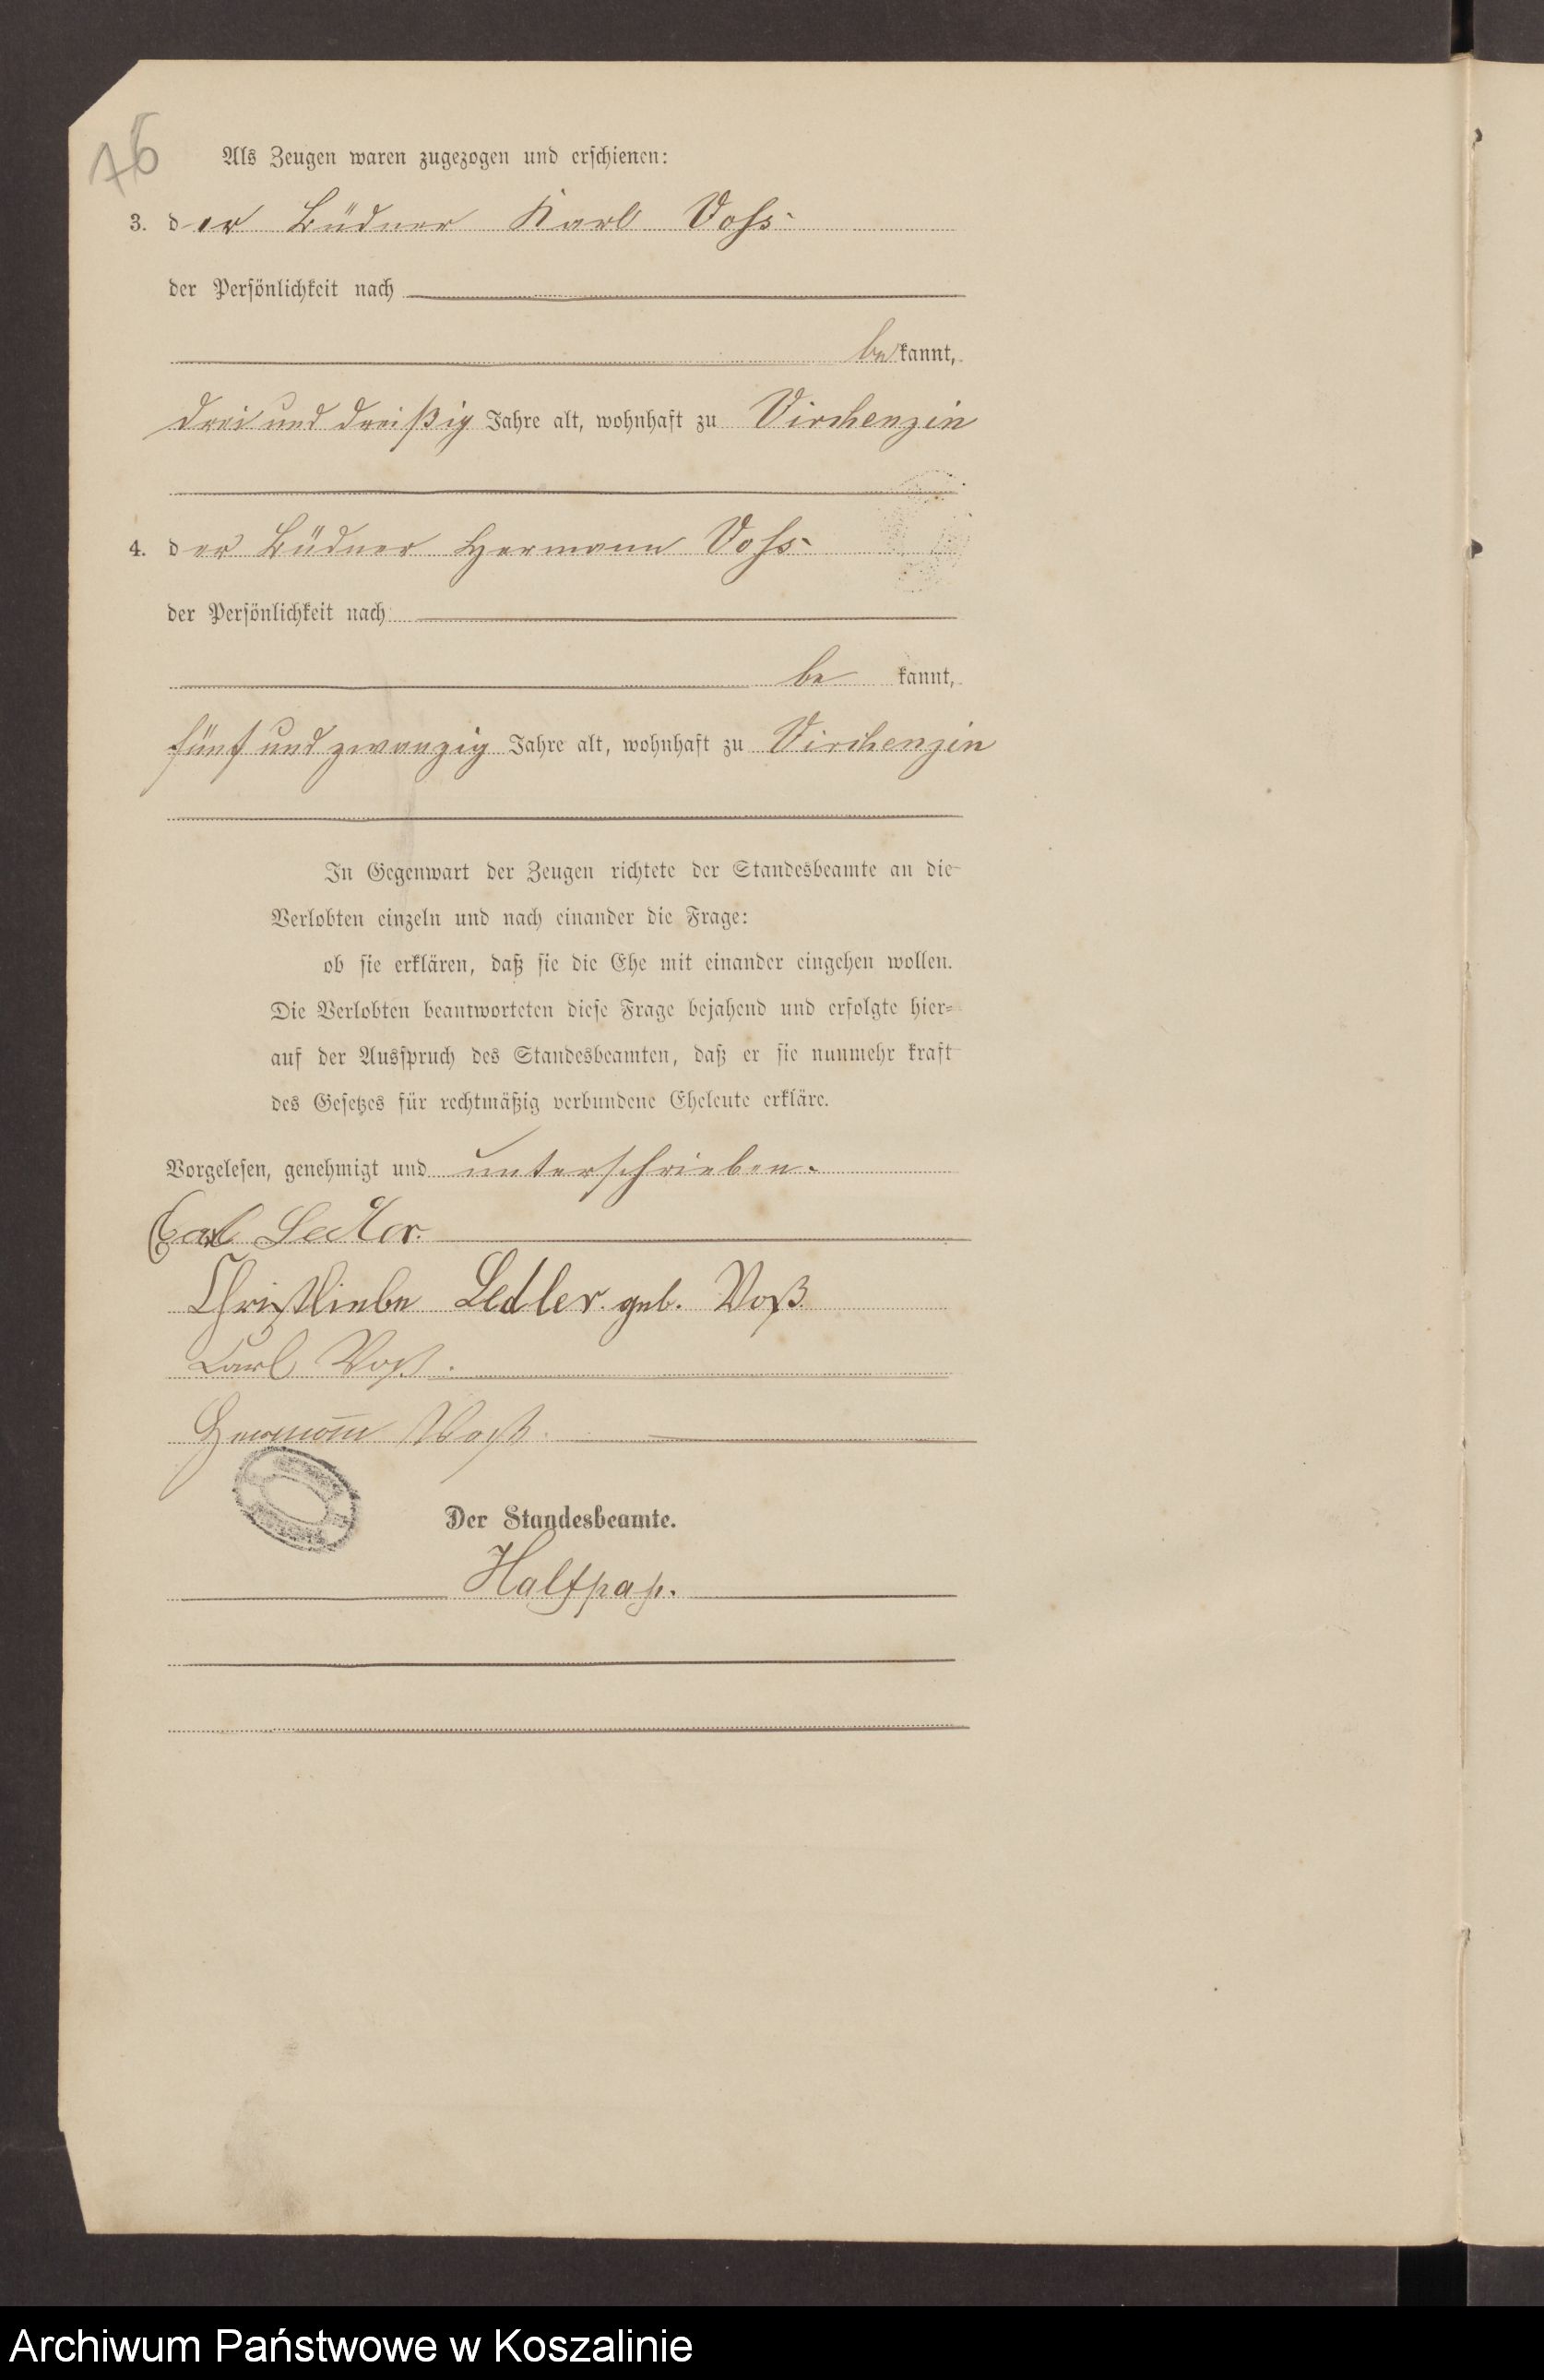 76
Als Zeugen waren zugezogen und erschienen:
3. der Büdner Karl Voss
der Persönlichkeit nach
bekannt,
drei und dreißig Jahre alt, wohnhaft zu Virchenzin
4. der Büdner Hermann Voss
der Persönlichkeit nach
be kannt,
fünf und zwanzig Jahre alt, wohnhaft zu Virchenzin
In Gegenwart der Zeugen richtete der Standesbeamte an die
Verlobten einzeln und nach einander die Frage:
ob sie erklären, daß sie die Ehe mit einander eingehen wollen.
Die Verlobten beantworteten diese Frage bejahend und erfolgte hier=
auf der Ausspruch des Standesbeamten, daß er sie nunmehr kraft
des Gesetzes für rechtmäßig verbundene Eheleute erkläre.
Vorgelesen, genehmigt und unterschrieben.
Carl
Christliebe Ledler geb. Voß
Carl Voß.
Hermann Voß.
Der Standesbeamte.
Halfpap.
Archiwum Państwowe w Koszalinie